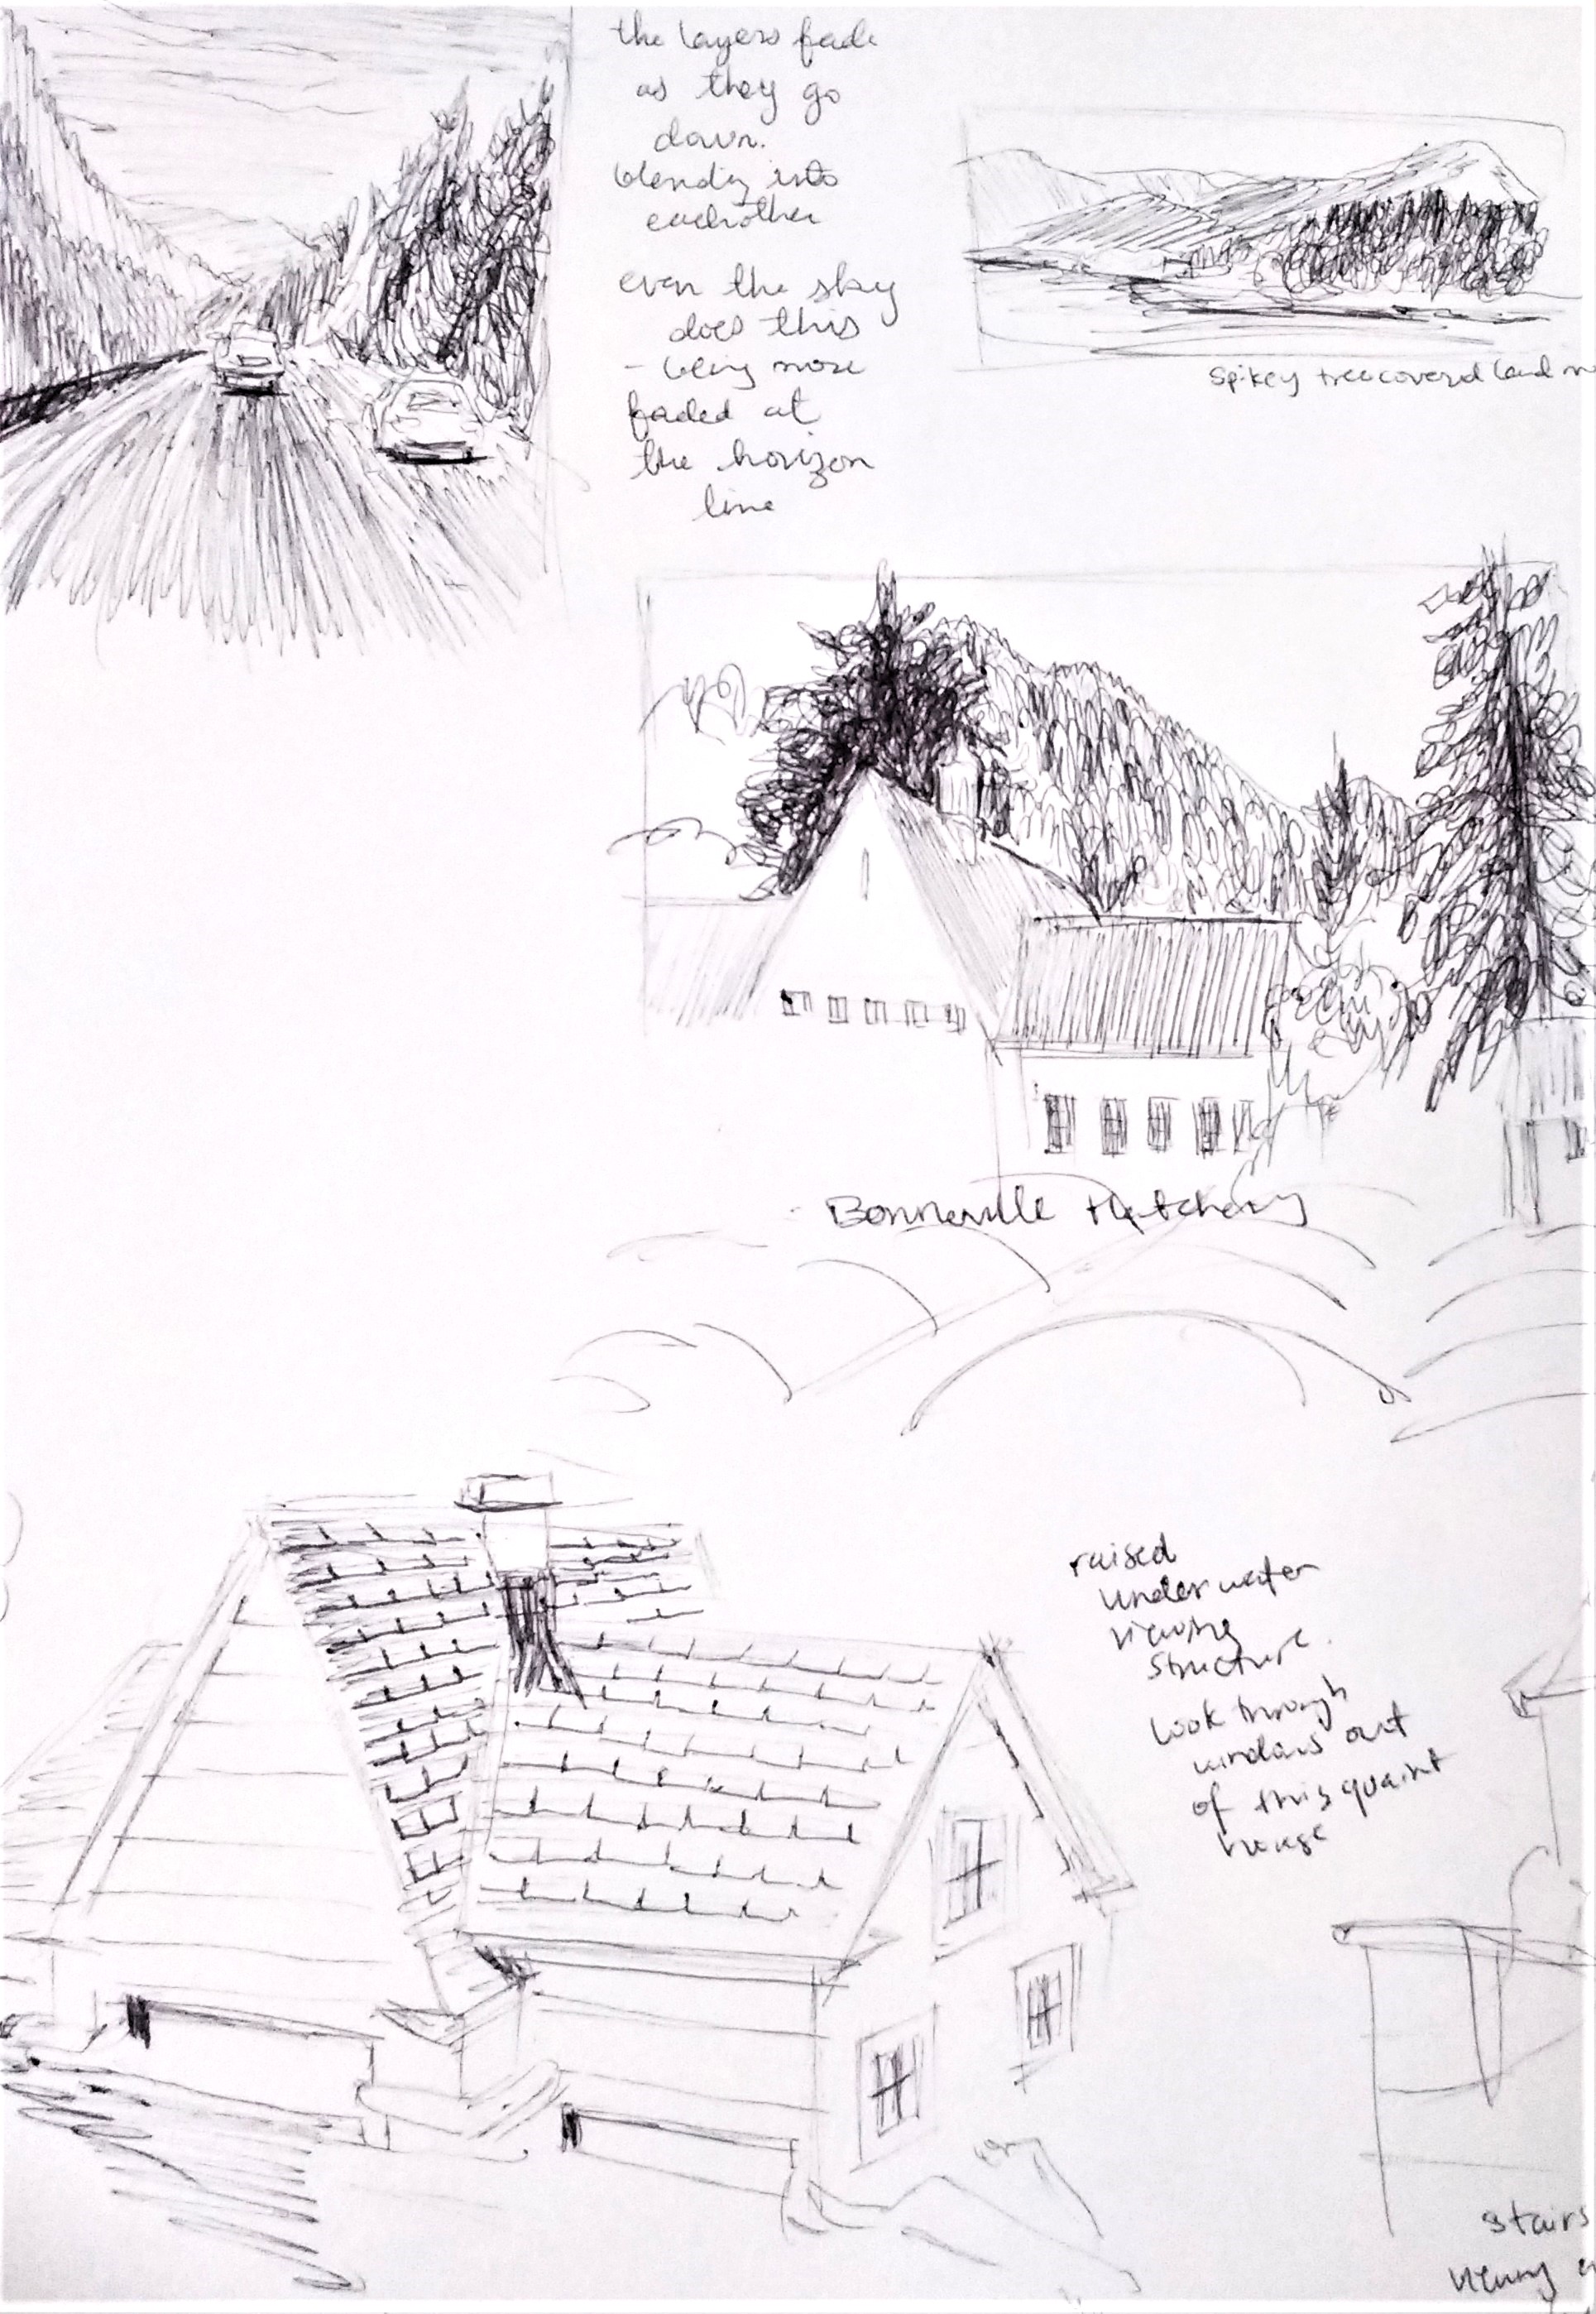 the layers fade
as they go
down.
blending into
eachother
even the sky
does this
- being more
faded at
the horizon
line
Spikey treecovered land m
Bonneville Hatchery
raised
underwater
viewing
structure.
look through
windows out
of this quaint
house
stairs